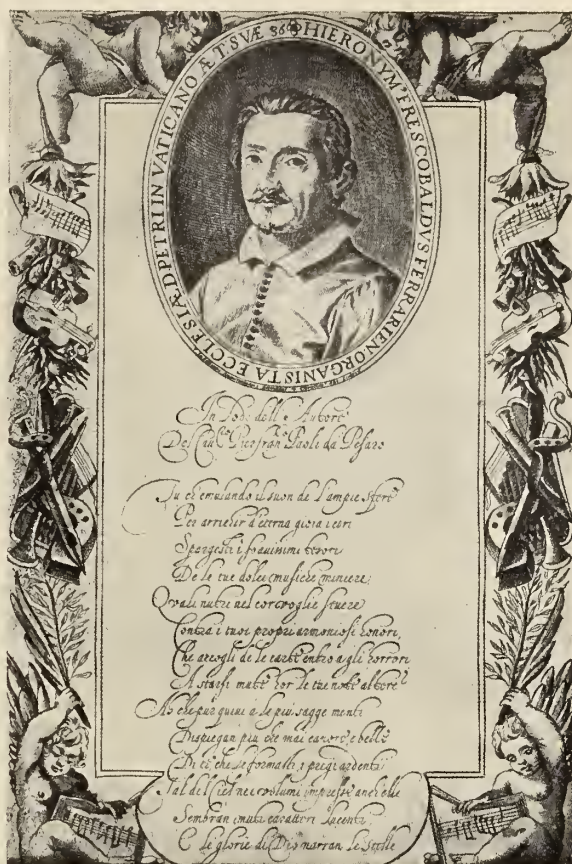 HIERONYM. FRESCOBALDVS FERRARIEN. ORGANISTA ECCLESIÆ D. PETRI IN VATICANO ÆT. SVÆ 36
In Lode dell'Autore
Del Cau.re Picofran.co Paoli da Pesaro
Tu ch'emulando il suon de l'ampie sfere
Per arrichir d'eterna gioia i cori
Spargesti i soauissimi tesori
De le tue dolci musiche miniere;
Quali nutri nel cor voglie seuere
Contra i tuoi propri armoniosi honori,
Che accogli de le carte entro a gli horrori
A starsi mute hor le tue note altere
Ah che pur quiui a le piu sagge menti
Dispiegan piu che mai canore, e belle
Di te, che le formasti, i pregi ardenti;
Tal del ciel ne' volumi impresse anch'elle
Sembran muti caratteri lucenti,
E le glorie di Dio narran le stelle